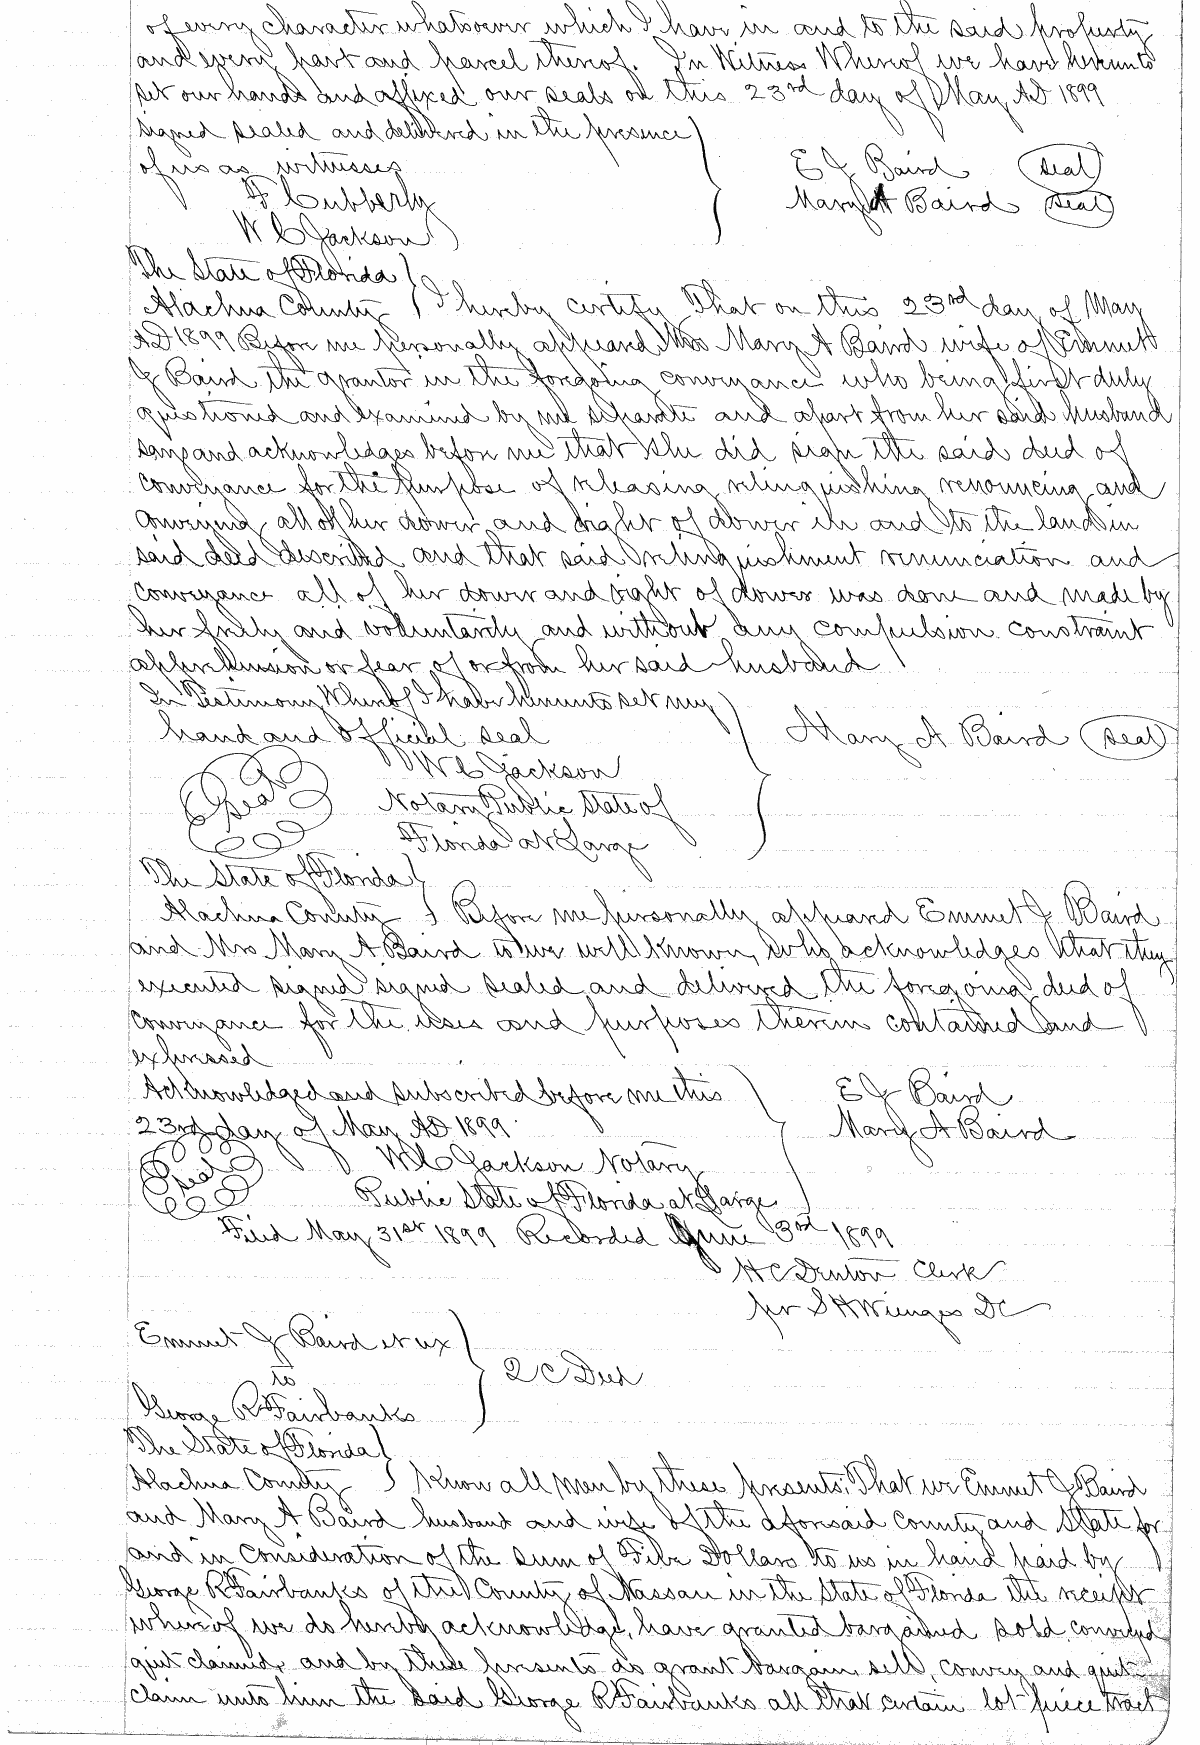 of every character whatsoever which I have in and to the said property
and every part and parcel thereof. In Witness Whereof we have hereunto
set our hands and affixed our seals on this 23rd day of May AD 1899
signed sealed and delivered in the presence
of us as witnesses
E J Baird (seal)
F Cubberly
Mary A Baird (seal)
W C Jackson
The State of Florida
Alachua County I hereby certify That on this 23rd day of May
AD 1899 Before me personally appeard Mrs Mary A Baird wife of Emmett
J Baird the grantor in the foregoing conveyance who being first duly
questioned and examined by me separate and apart from her said husband
says and acknowledges before me that she did sign the said deed of
conveyance for the purpose of releasing relinquishing renouncing and
conveying all of her dower and right of dower in and to the land in
said deed described and that said relinquishment renunciation and
conveyance all of her dower and right of dower was done and made by
her freely and voluntarily and without any compulsion constraint
apprehension or fear of or from her said husband
In Testimony Whereof I have hereunto set my
hand and official seal
Mary A Baird (seal)
W C Jackson
Seal
Notary Public State of
Florida at Large
The State of Florida
Alachua County Before me personally appeard Emmet J Baird
and Mrs Mary A Baird to me well known, who acknowledges that they
executed signed signed sealed and delivered the foregoing deed of
conveyance for the uses and purposes therein contained and
expressed
Acknowledged and subscribed before me this
E J Baird
23rd day of May AD 1899
Mary A Baird
Seal
W C Jackson Notary
Public State of Florida at Large
Filed May 31st 1899 Recorded June 3rd 1899
H C Denton Clerk
per S H Wienges DC
Emmet J Baird et ux
to
Q C Deed
George R Fairbanks
The State of Florida
Alachua County Know all men by these presents; That we Emmet J Baird
and Mary A Baird husband and wife of the aforesaid County and State for
and in consideration of the sum of Five Dollars to us in hand paid by
George R Fairbanks of the County of Nassau in the State of Florida the receipt
whereof we do hereby acknowledge, have granted bargained sold conveyed
quit claimed, and by these presents do grant bargain, sell, convey and quit
claim unto him the said George R Fairbanks all that certain lot piece tract